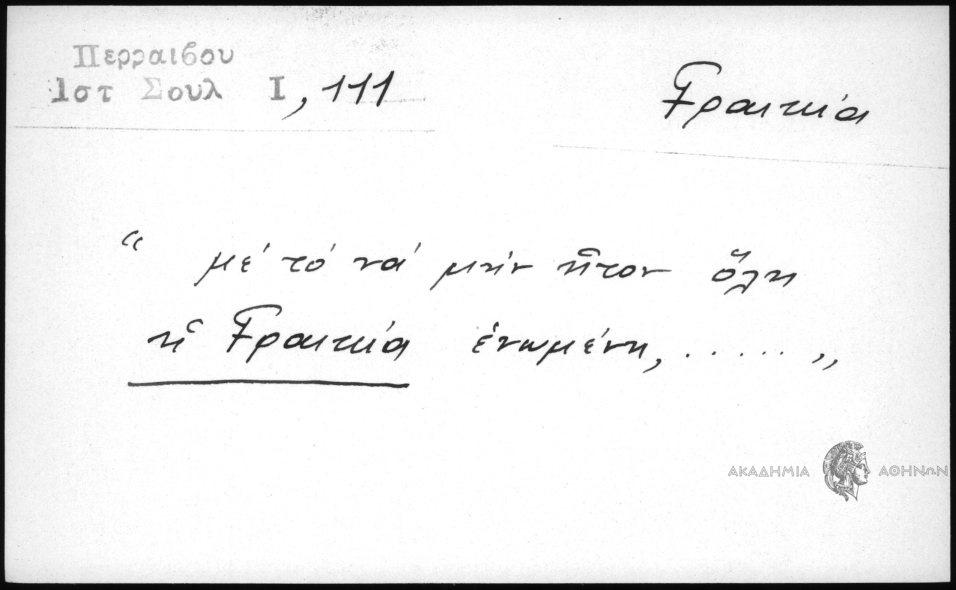 Περραιβου
Ιστ Σουλ Ι, 111
Γραικία
“ μέ τό νά μήν ἦτον ὅλη
ἡ Γραικία ἑνωμένη, ...... „
ΑΚΑΔΗΜΙΑ ΑΘΗΝΩΝ